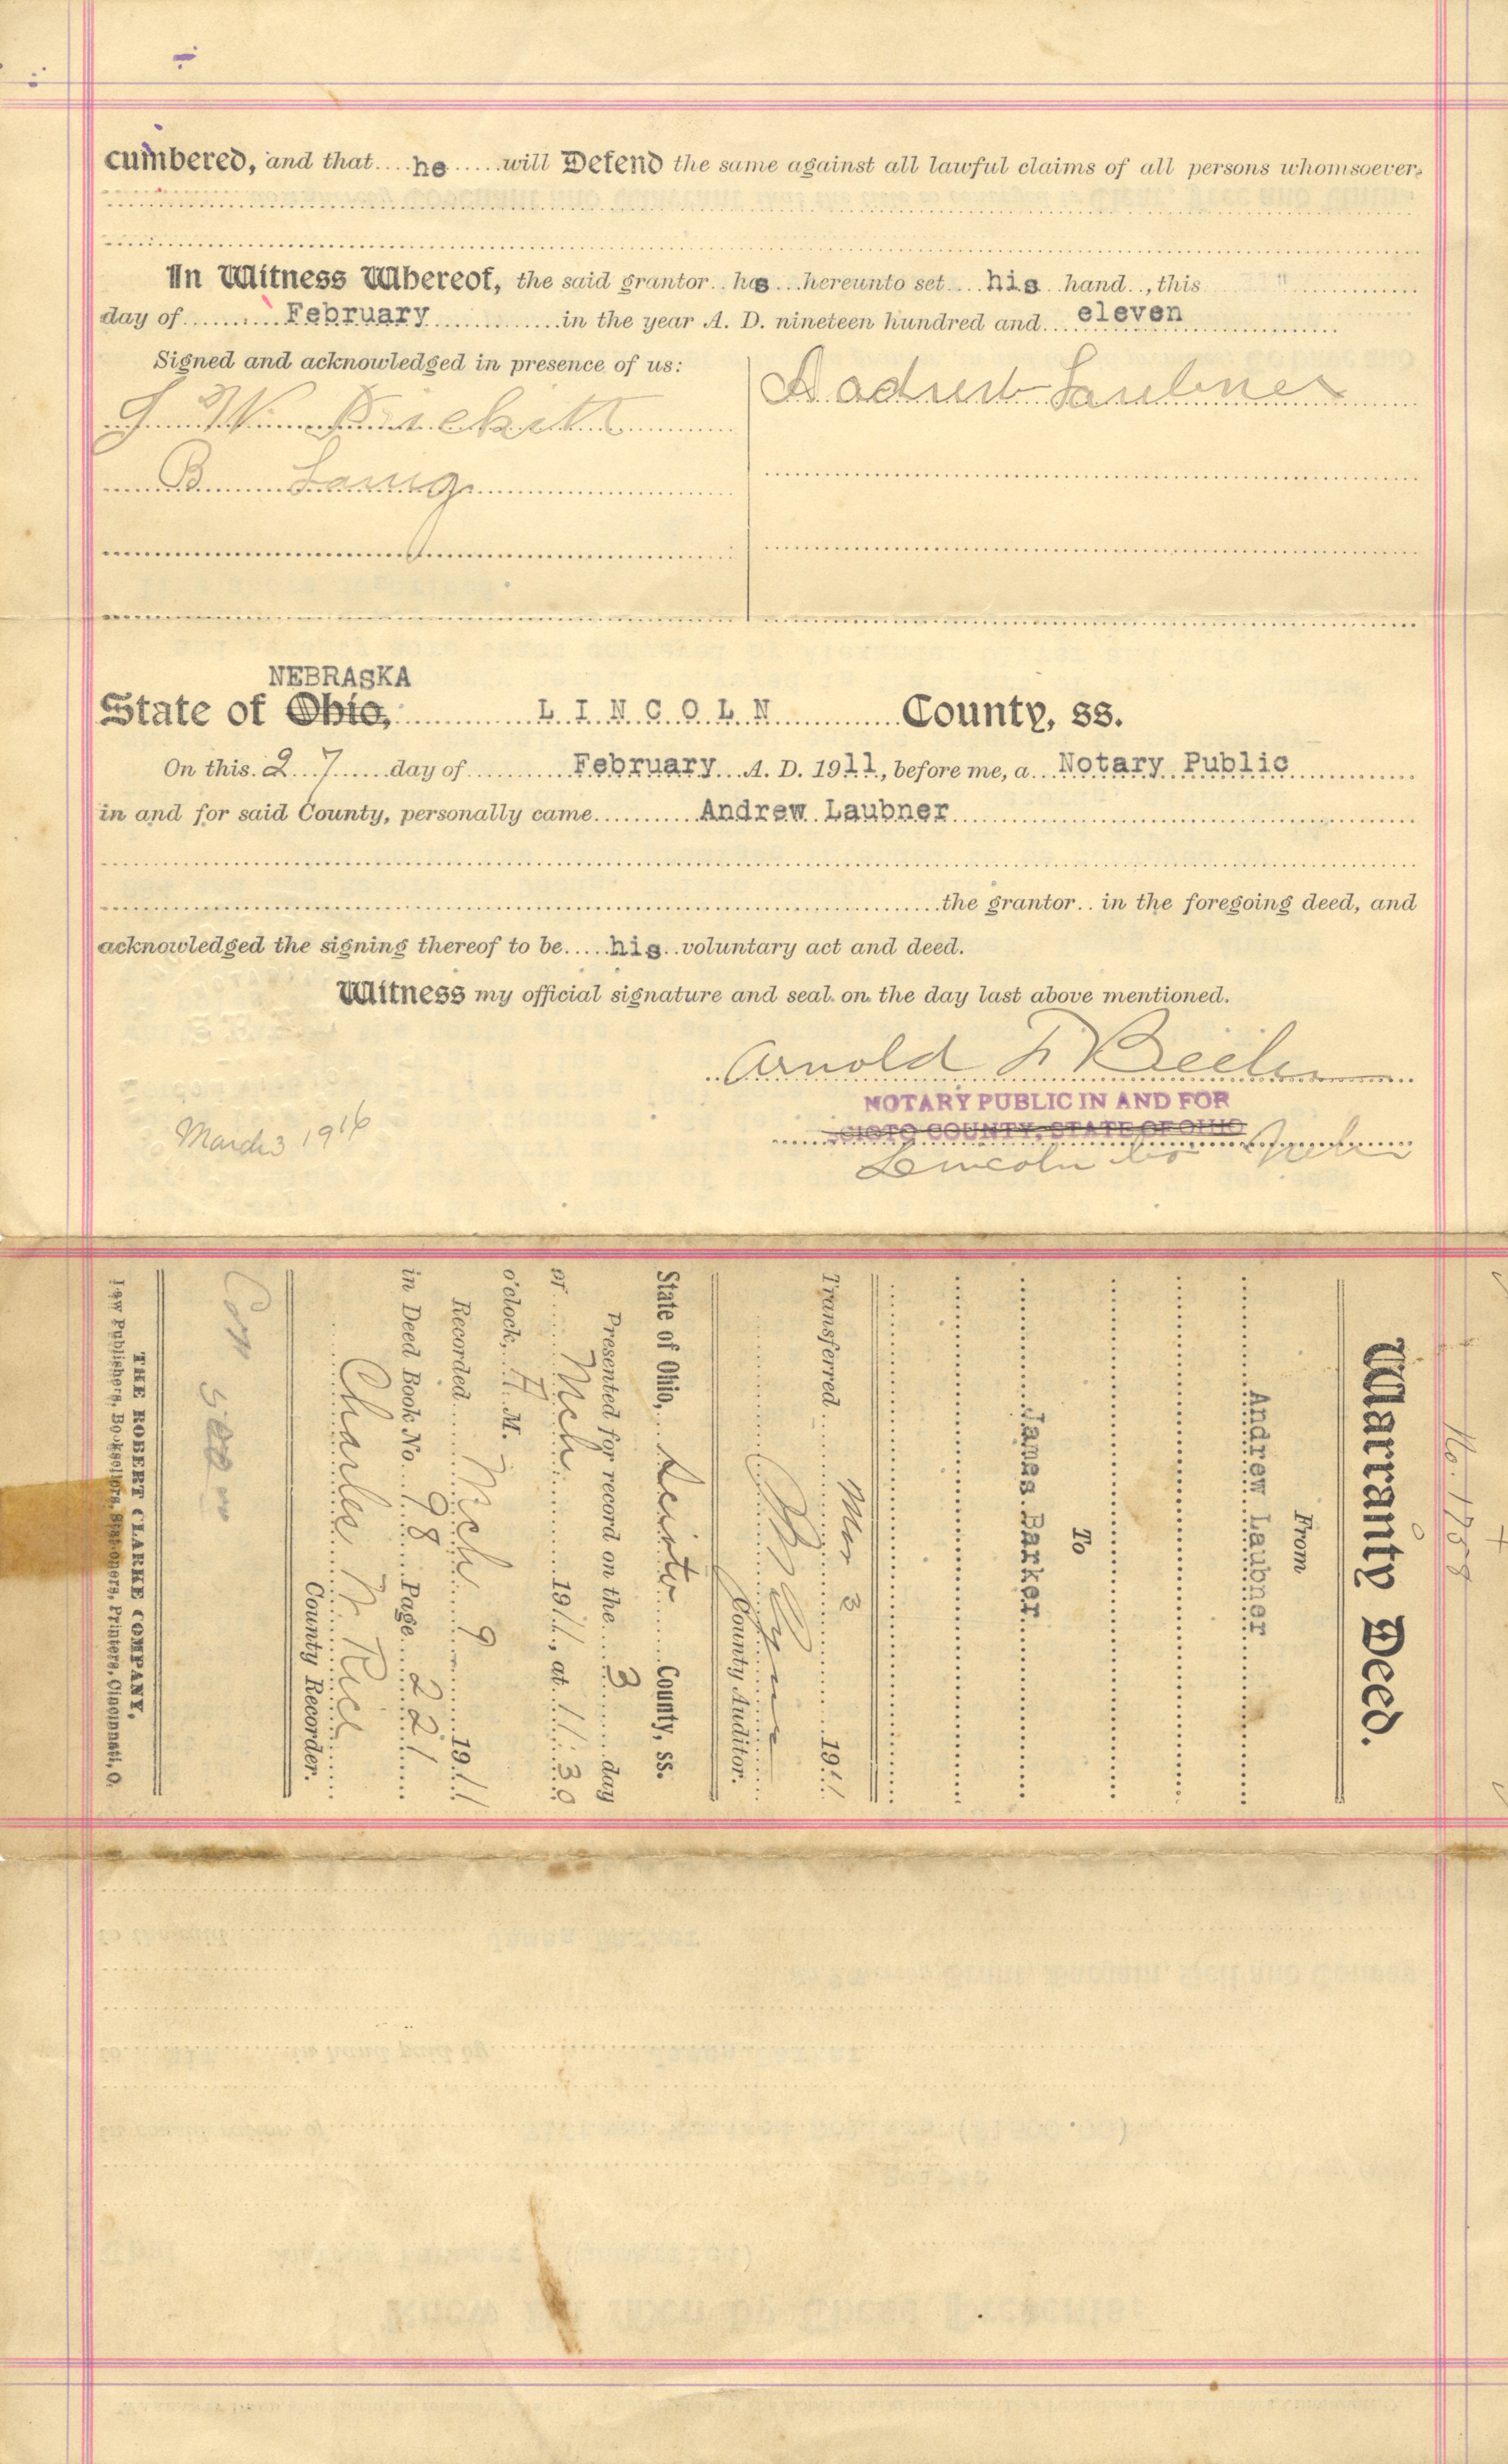 cumbered, and that he will Defend the same against all lawful claims of all persons whomsoever.
In Witness Whereof, the said grantor has hereunto set his hand, this
day of February in the year A. D. nineteen hundred and eleven
Signed and acknowledged in presence of us:
Andrew Laubner
B
NEBRASKA
State of Ohio, LINCOLN County, ss.
On this 27 day of February A. D. 1911, before me, a Notary Public
in and for said County, personally came Andrew Laubner
the grantor in the foregoing deed, and
acknowledged the signing thereof to be his voluntary act and deed.
Witness my official signature and seal on the day last above mentioned.
Arnold F Beeler
NOTARY PUBLIC IN AND FOR
SCIOTO COUNTY, STATE OF OHIO
Lincoln Co Nebr
March 3 1916
No. 1758
Warranty Deed.
From
Andrew Laubner
To
James Barker
Transferred Mar 3 1911
County Auditor.
State of Ohio, Scioto County, ss.
Presented for record on the 3 day
of Mch 1911, at 11:30
o'clock, A M.
Recorded Mch 9 1911
in Deed Book No. 98 Page 221
Charles M
County Recorder.
THE ROBERT CLARKE COMPANY,
Law Publishers, Booksellers, Stationers, Printers, Cincinnati, O.